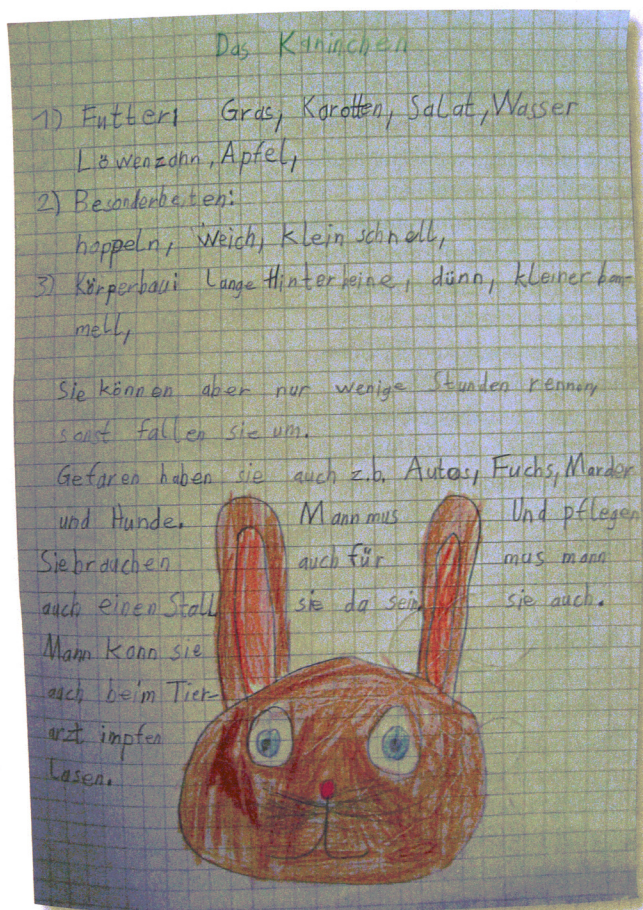 Das Kaninchen
1) Futter: Gras, Karotten, Salat, Wasser
Löwenzahn, Apfel,
2) Besonderheiten:
hoppeln, Weich, klein schnell,
3) Körperbau: Lange Hinterbeine, dünn, kleiner bom-
mell,
Sie können aber nur wenige Stunden rennen,
sonst fallen sie um.
Gefaren haben sie auch z.b. Autos, Fuchs, Marder
und Hunde.
Sie brauchen
auch einen Stall
Mann kann sie
auch beim Tier-
arzt impfen
lasen.
Mann mus
auch für
sie da sein.
Und pflegen
mus mann
sie auch.